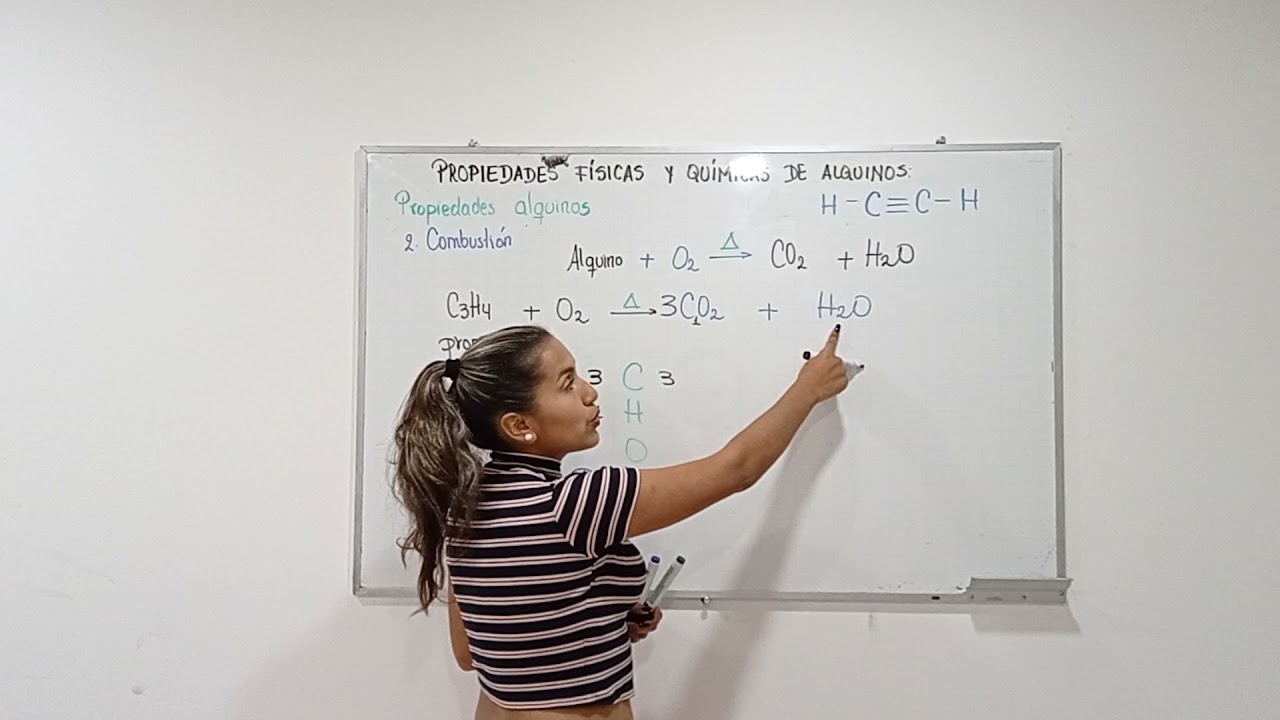 PROPIEDADES FÍSICAS Y QUÍMICAS DE ALQUINOS:
Propiedades alquinos
H - C ≡ C - H
2. Combustión
Alquino + O₂ →Δ CO₂ + H₂O
C₃H₄ + O₂ →Δ 3C₁O₂ + H₂O
3 C 3
H
O